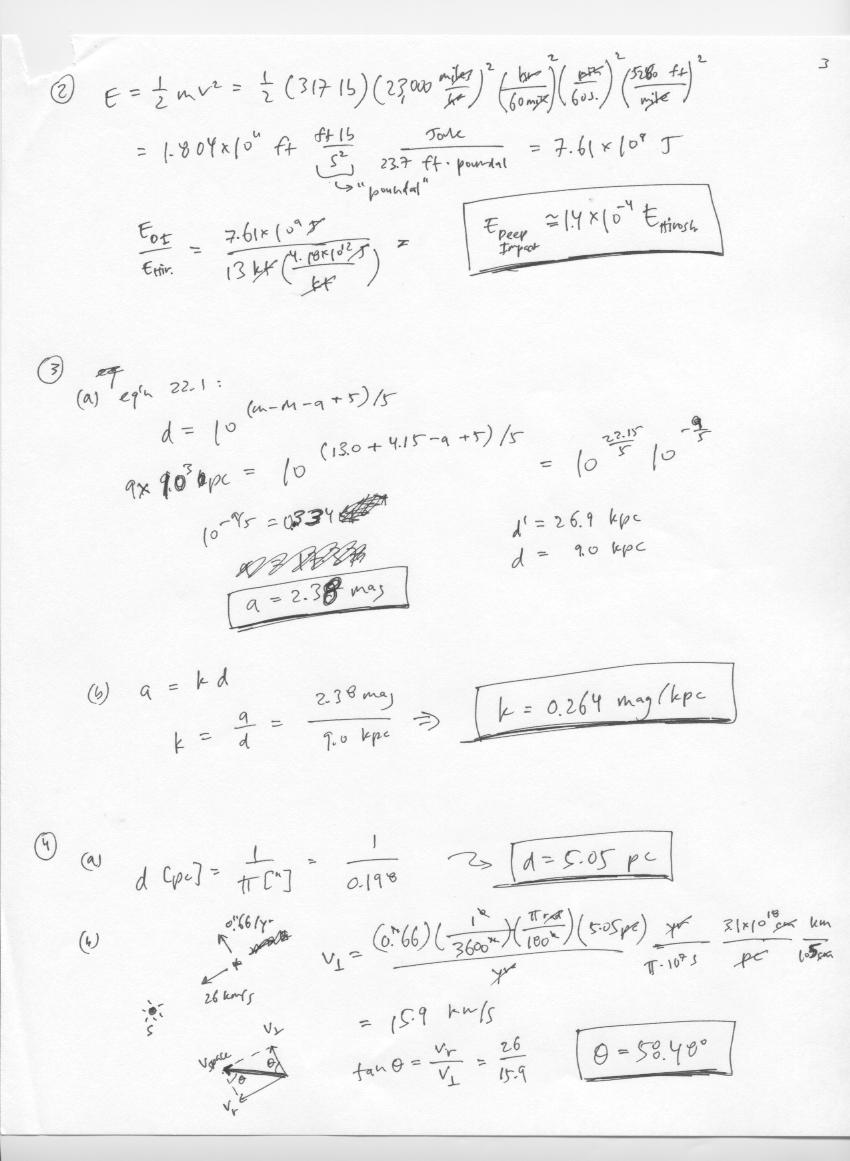 3
② E = 1/2 mv² = 1/2 (317 lb) (23,000 miles/hr)² (hr/60 min)² (min/60 s.)² (5280 ft/mile)²
= 1.804×10¹¹ ft ft lb/s² Joule/23.7 ft·poundal = 7.61×10⁹ J
↳ "poundal"
E_DI/E_Hir. = 7.61×10⁹ J / 13 kt (4.18×10¹² J/kt) = E_Deep Impact ≅ 1.4×10⁻⁴ E_Hirosh
③
(a) eq'n 22.1 :
d = 10^(m-M-a+5)/5
9× 10³ pc = 10^(13.0 + 4.15 - a + 5)/5 = 10^22.15/5 10^-a/5
10^-a/5 = 0.334
d' = 26.9 kpc
d = 9.0 kpc
a = 2.38 mag
(b) a = k d
k = a/d = 2.38 mag/9.0 kpc ⇒ k = 0.264 mag/kpc
④
(a) d [pc] = 1/π ["] = 1/0.198 → d = 5.05 pc
(b) 0."66/yr
26 km/s
S
v⊥ = (0."66) (1°/3600") (π rad/180°) (5.05 pc)/yr yr/π·10⁷ s 3.1×10¹⁸ cm/pc km/10⁵ cm
= 15.9 km/s
v⊥
v_space
θ
θ
v_r
tan θ = v_r/v⊥ = 26/15.9
θ = 58.40°